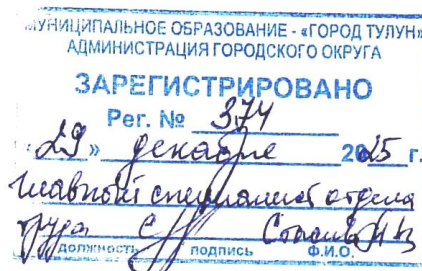 МУНИЦИПАЛЬНОЕ ОБРАЗОВАНИЕ - «ГОРОД ТУЛУН»
АДМИНИСТРАЦИЯ ГОРОДСКОГО ОКРУГА
ЗАРЕГИСТРИРОВАНО
Рег. № 374
«29» декабре 2025 г.
главный специалист отдела
труда
должность подпись Ф.И.О.